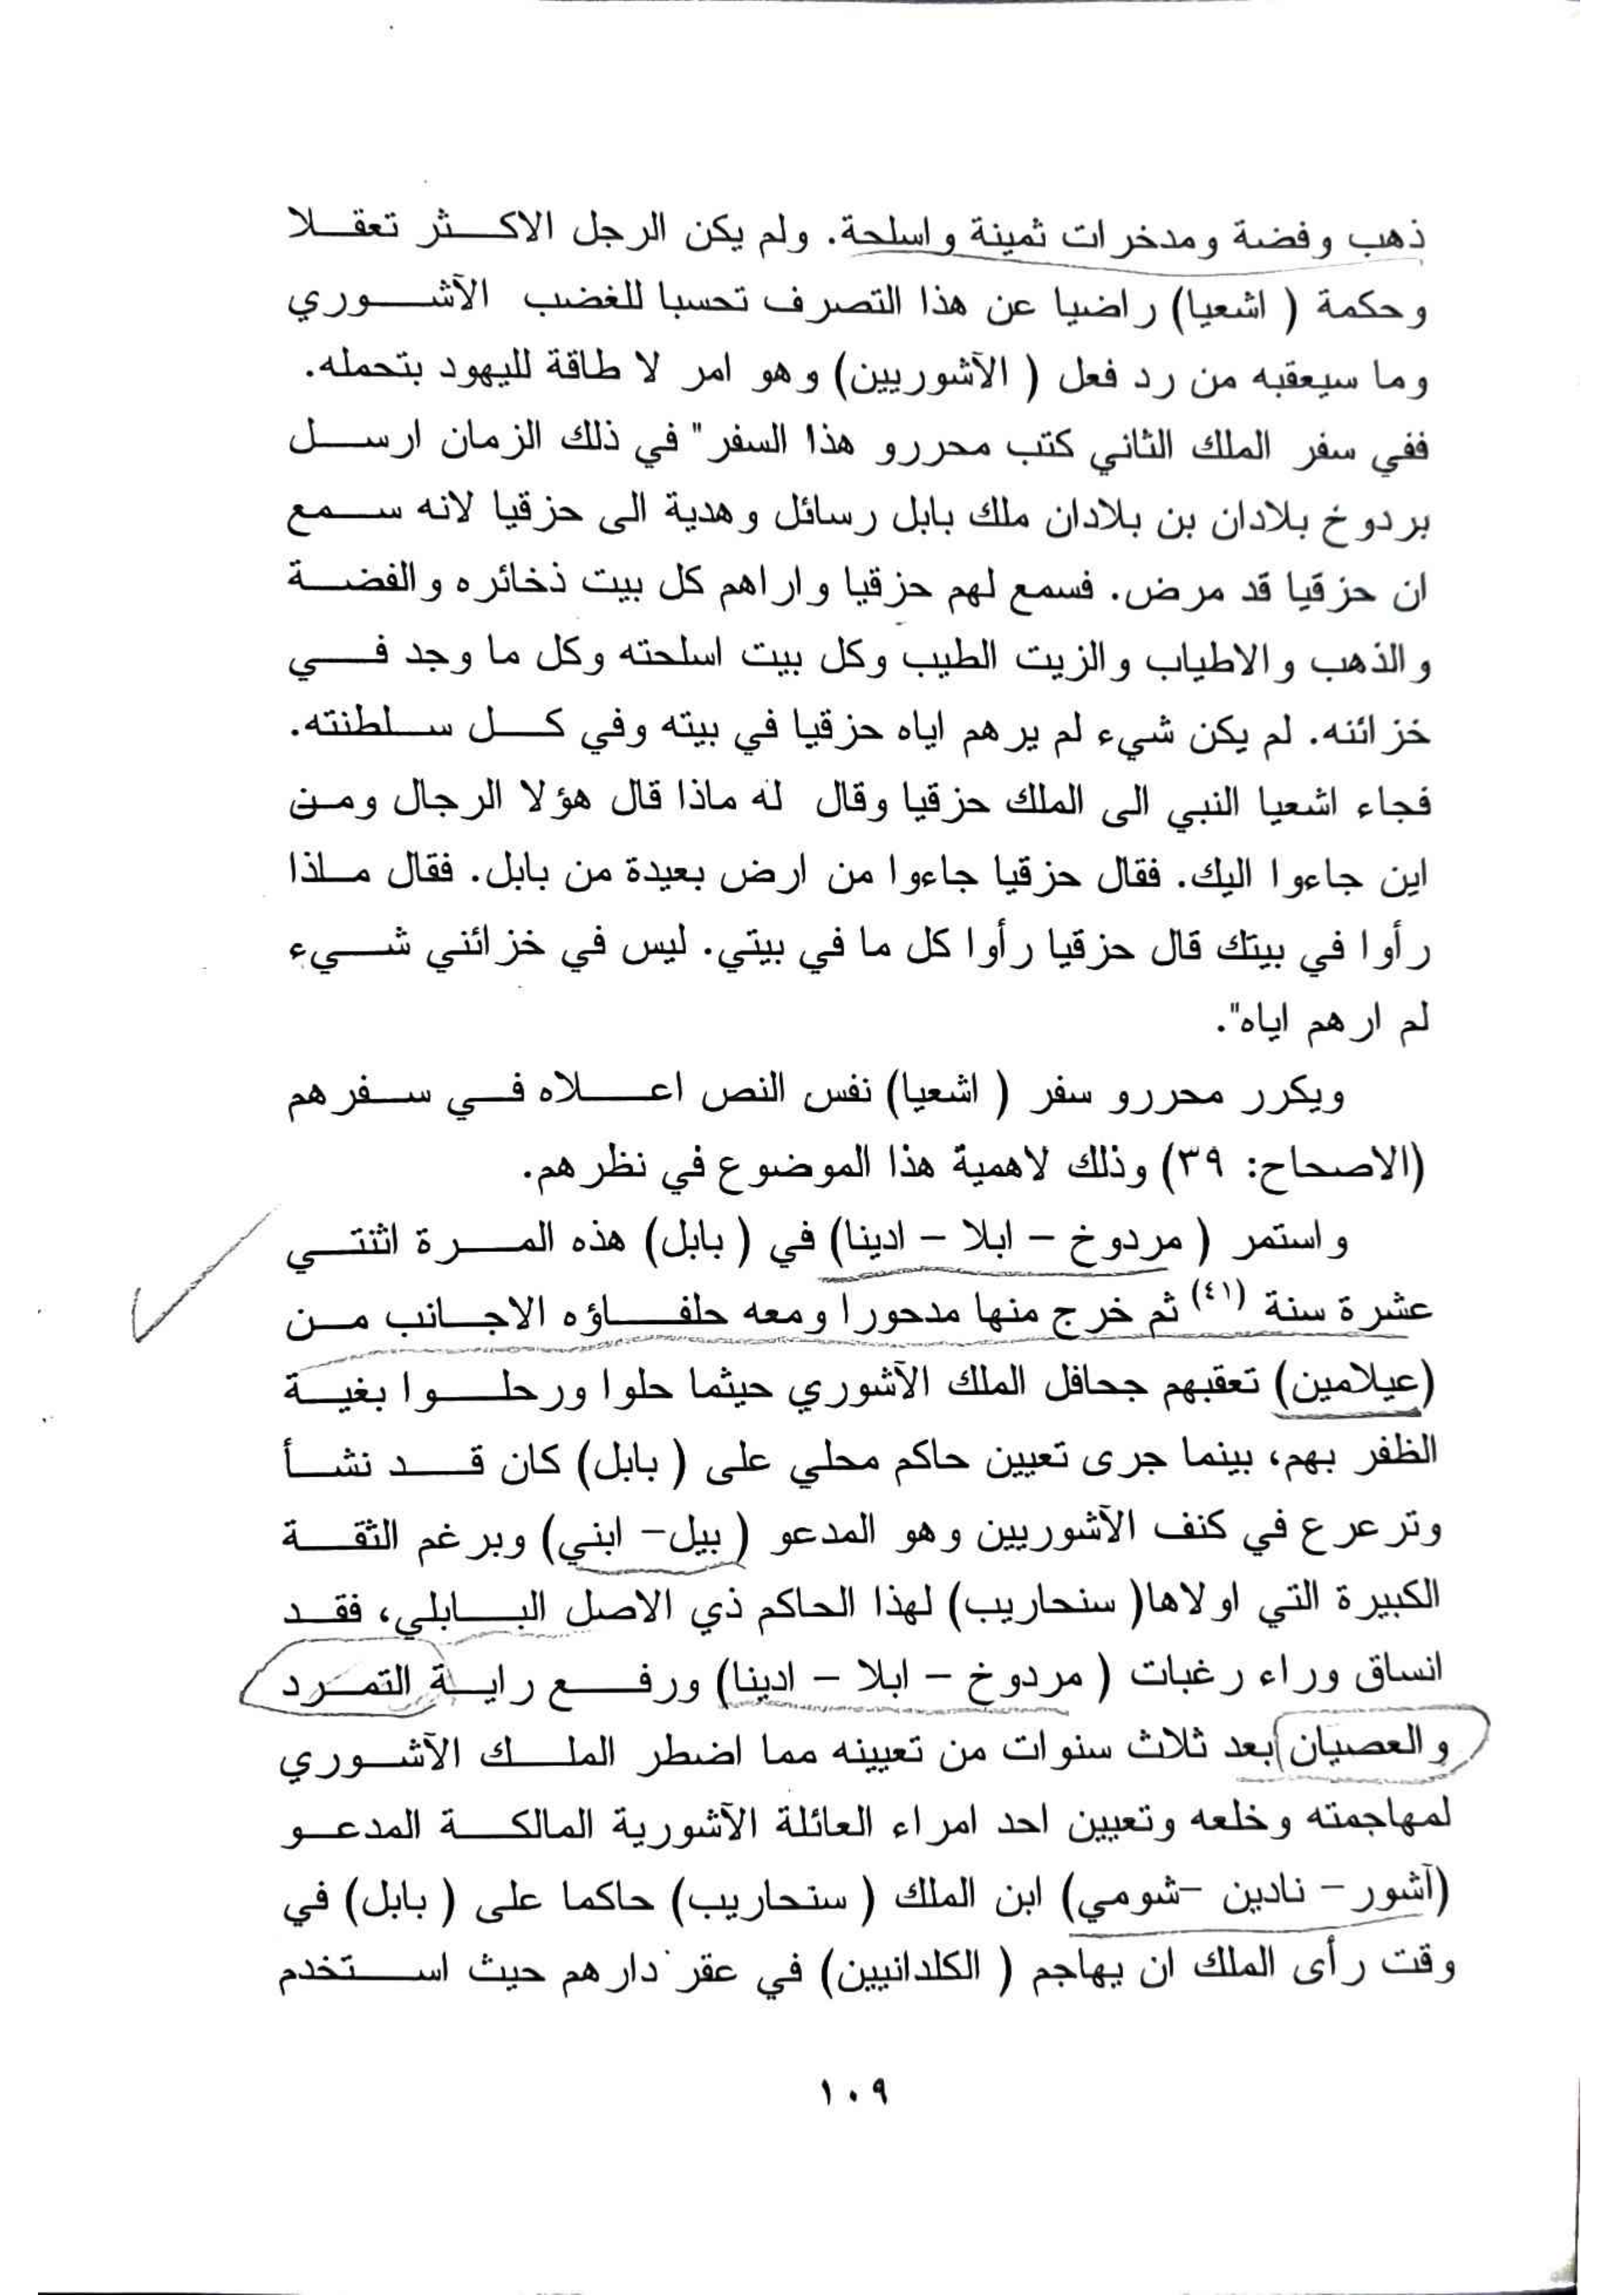 ذهب وفضة ومدخرات ثمينة واسلحة. ولم يكن الرجل الاكثر تعقلا
وحكمة ( اشعيا) راضيا عن هذا التصرف تحسبا للغضب الآشوري
وما سيعقبه من رد فعل ( الآشوريين) وهو امر لا طاقة لليهود بتحمله.
ففي سفر الملك الثاني كتب محررو هذا السفر" في ذلك الزمان ارسل
بردوخ بلادان بن بلادان ملك بابل رسائل وهدية الى حزقيا لانه سمع
ان حزقيا قد مرض. فسمع لهم حزقيا واراهم كل بيت ذخائره والفضة
والذهب والاطياب والزيت الطيب وكل بيت اسلحته وكل ما وجد في
خزائنه. لم يكن شيء لم يرهم اياه حزقيا في بيته وفي كل سلطنته.
فجاء اشعيا النبي الى الملك حزقيا وقال له ماذا قال هؤلا الرجال ومن
اين جاءوا اليك. فقال حزقيا جاءوا من ارض بعيدة من بابل. فقال ماذا
رأوا في بيتك قال حزقيا رأوا كل ما في بيتي. ليس في خزائني شيء
لم ارهم اياه".
ويكرر محررو سفر ( اشعيا) نفس النص اعلاه في سفرهم
(الاصحاح: ٣٩) وذلك لاهمية هذا الموضوع في نظرهم.
واستمر ( مردوخ – ابلا – ادينا) في ( بابل) هذه المرة اثنتي
عشرة سنة (٤١) ثم خرج منها مدحورا ومعه حلفاؤه الاجانب من
(عيلامين) تعقبهم جحافل الملك الآشوري حيثما حلوا ورحلوا بغية
الظفر بهم، بينما جرى تعيين حاكم محلي على ( بابل) كان قد نشأ
وترعرع في كنف الآشوريين وهو المدعو ( بيل– ابني) وبرغم الثقة
الكبيرة التي اولاها( سنحاريب) لهذا الحاكم ذي الاصل البابلي، فقد
انساق وراء رغبات ( مردوخ – ابلا – ادينا) ورفع راية التمرد
والعصيان بعد ثلاث سنوات من تعيينه مما اضطر الملك الآشوري
لمهاجمته وخلعه وتعيين احد امراء العائلة الآشورية المالكة المدعو
(آشور– نادين –شومي) ابن الملك ( سنحاريب) حاكما على ( بابل) في
وقت رأى الملك ان يهاجم ( الكلدانيين) في عقر دارهم حيث استخدم
١٠٩